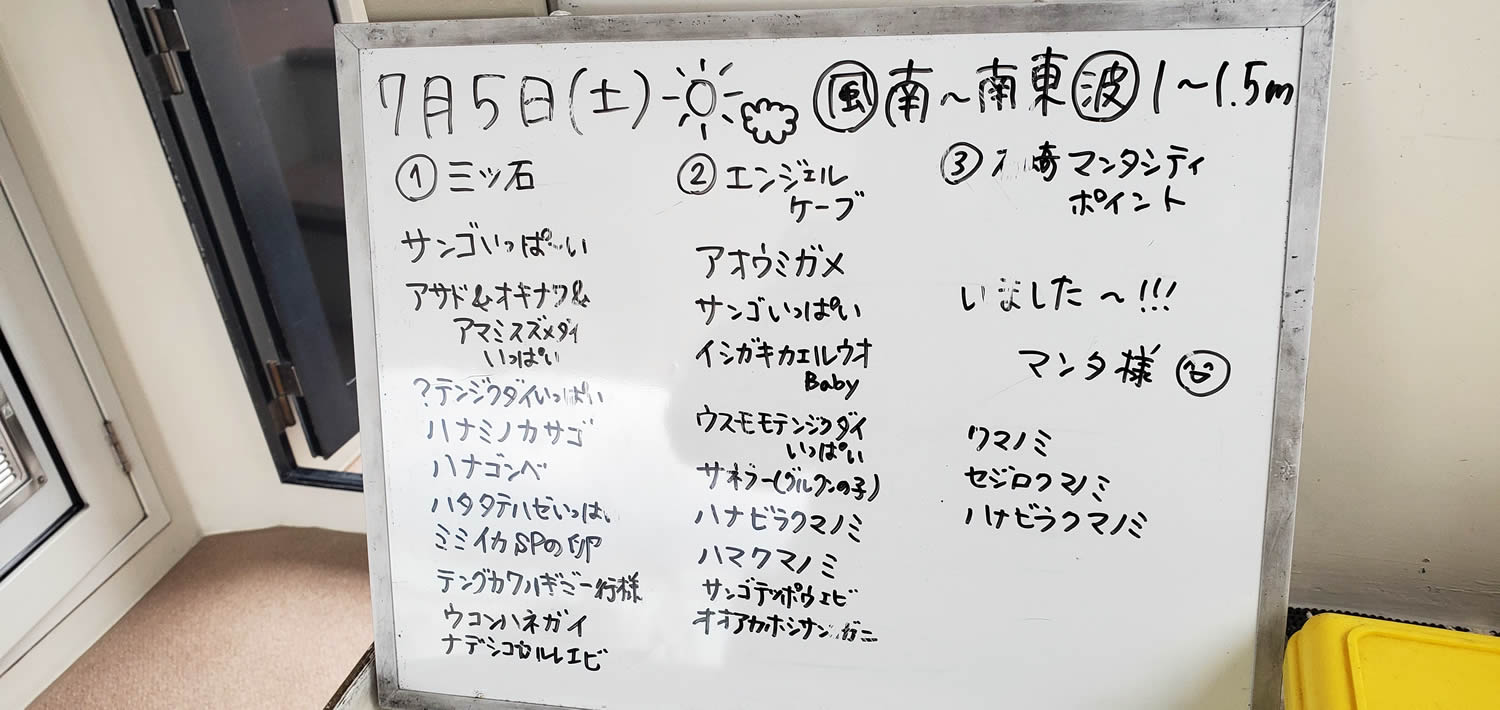 7月5日(土) 風 南~南東 波 1~1.5m
① 三ッ石
サンゴいっぱ~い
アサド&オキナワ&
アマミスズメダイ
いっぱい
?テンジクダイいっぱい
ハナミノカサゴ
ハナゴンベ
ハタタテハゼいっぱい
ミミイカSPの卵
テングカワハギご一行様
ウコンハネガイ
ナデシコカルレエビ
② エンジェル
ケーブ
アオウミガメ
サンゴいっぱい
イシガキカエルウオ
Baby
ウスモモテンジクダイ
いっぱい
サネラー(グルクンの子)
ハナビラクマノミ
ハマクマノミ
サンゴテッポウエビ
オオアカホシサンガニ
③ 崎マンタシティ
ポイント
いました~!!!
マンタ様
クマノミ
セジロクマノミ
ハナビラクマノミ